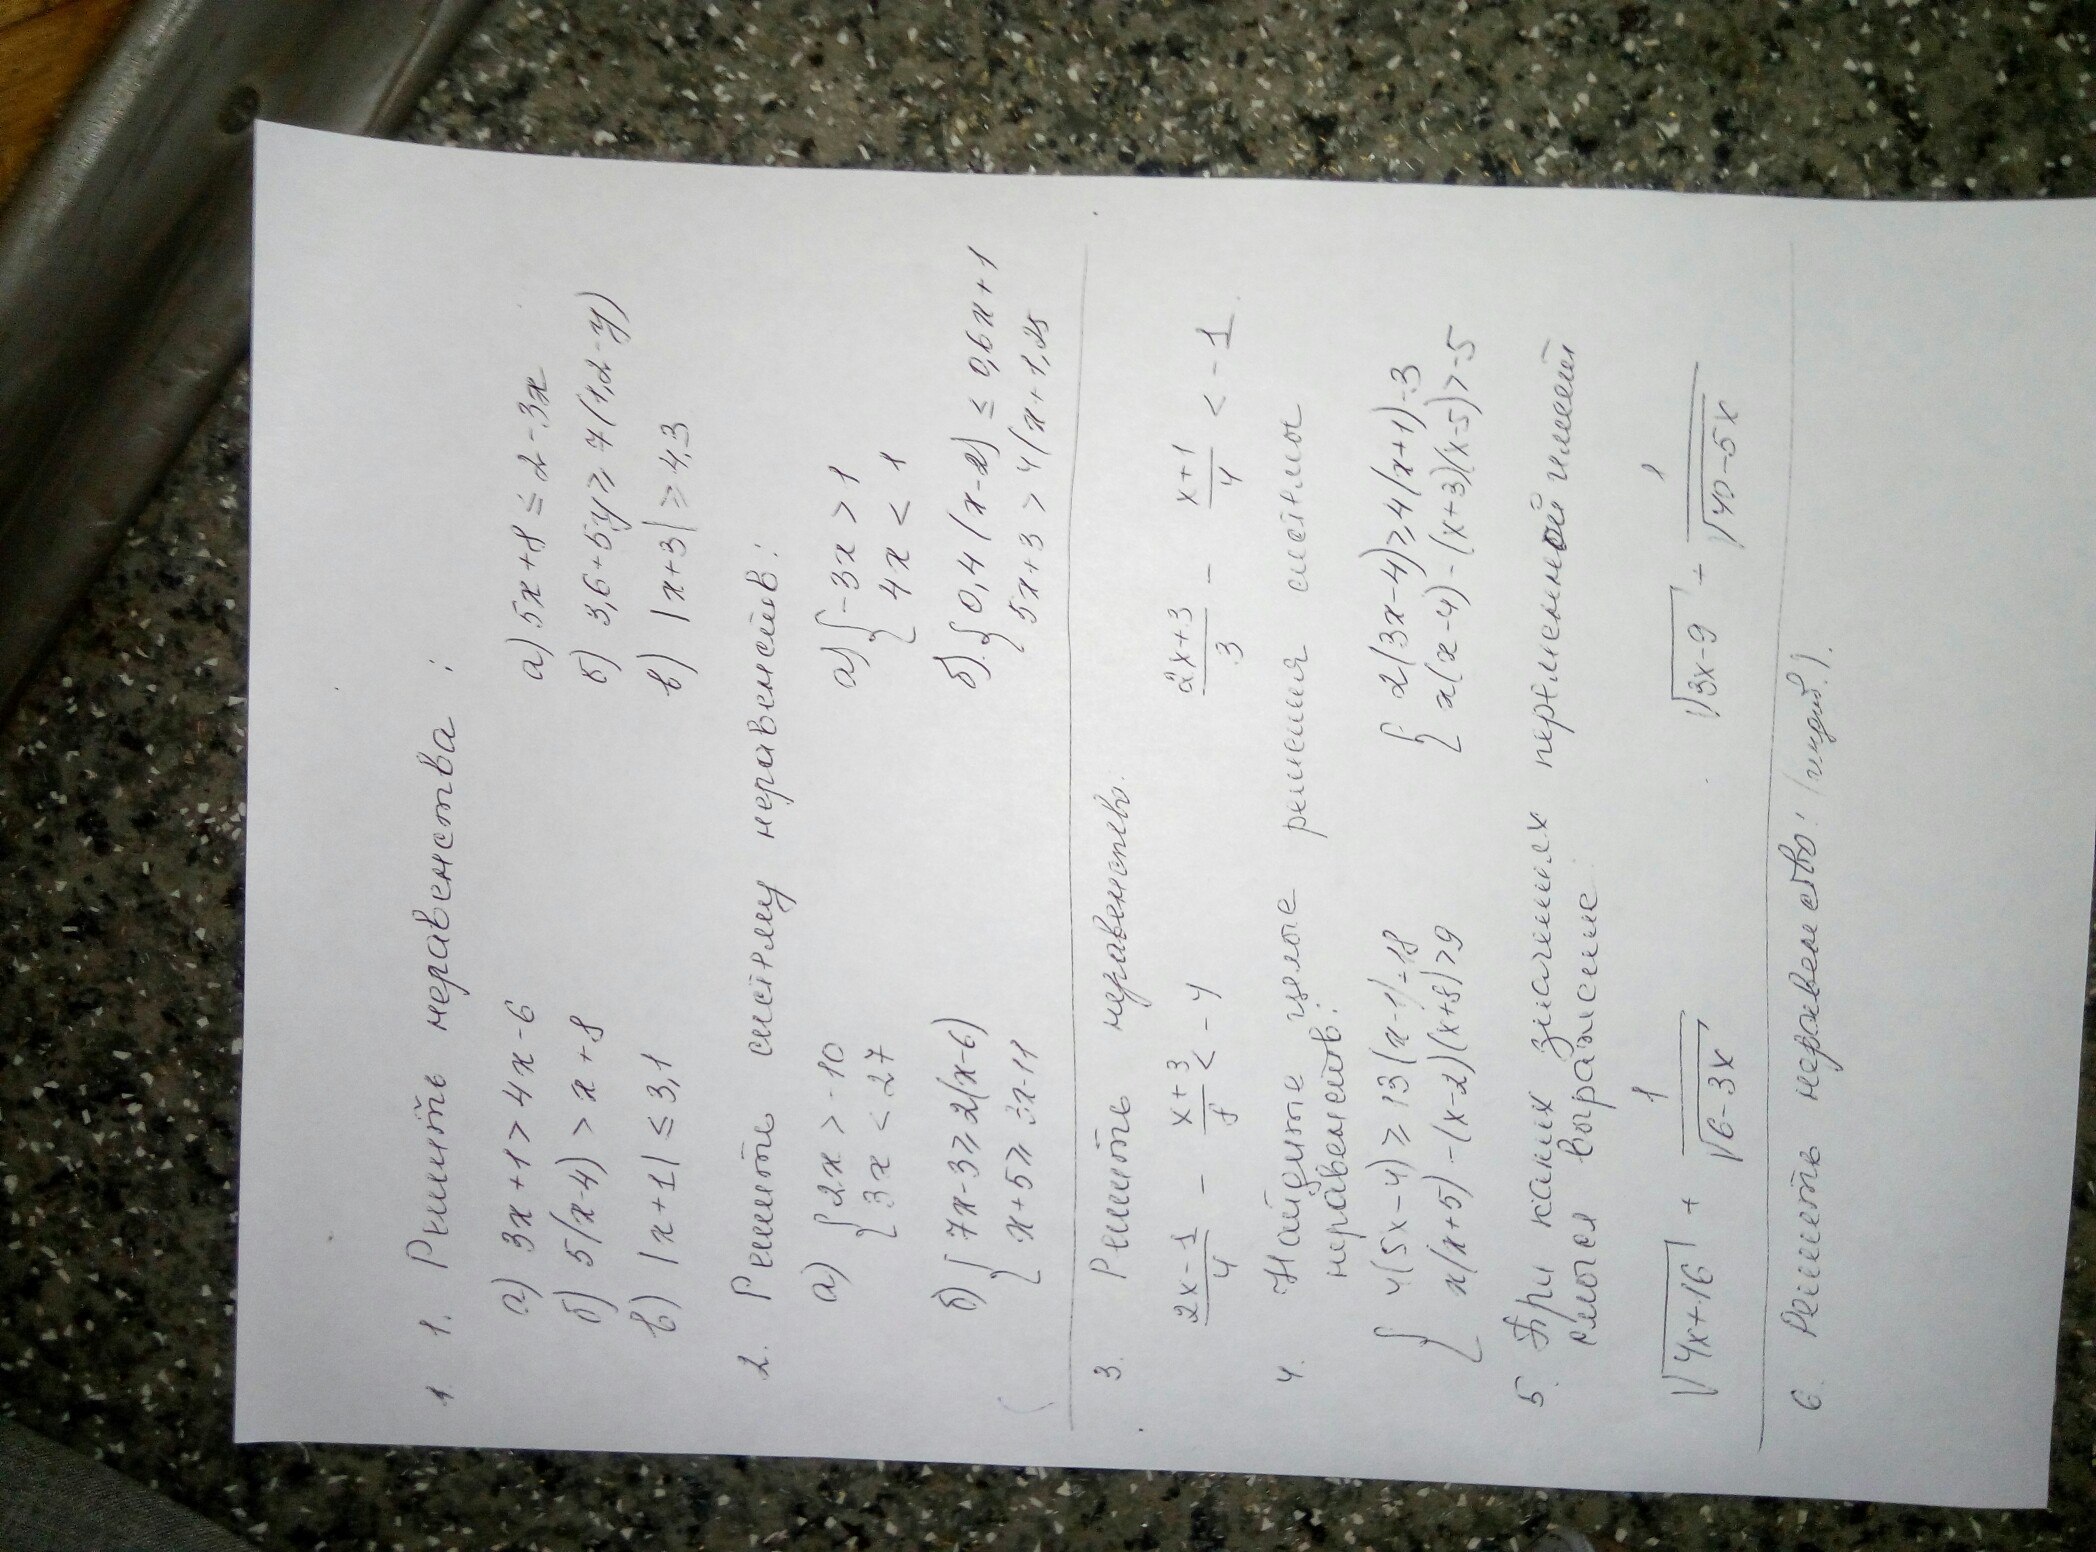 1. 1. Решить неравенства :
а) 3x+1>4x-6 а) 5x+8 ≤ 2-3x
б) 5(x-4) > x+8 б) 3,6+5y ≥ 7(1,2-y)
в) |x+1| ≤ 3,1 в) |x+3| ≥ 4,3
2. Решите систему неравенств:
а) { 2x > -10 а) { -3x > 1
3x < 27 4x < 1
б) { 7x-3 ≥ 2(x-6) б) { 0,4(x-2) ≤ 0,6x+1
x+5 ≥ 3x-11 5x+3 > 4(x+1,25
3. Решить неравенство.
2x-1/4 - x+3/8 < -4 2x+3/3 - x+1/4 < -1
4. Найдите целые решения системы
неравенств:
{ 4(5x-4) ≥ 13(x-1)-18 { 2(3x-4) ≥ 4(x+1)-3
x(x+5)-(x-2)(x+8)>9 x(x-4)-(x+3)(x-5)>-5
5. При каких значениях переменной имеет
смысл выражение
√4x+16 + 1/√6-3x √3x-9 + 1/√40-5x
6. Решить неравенство: